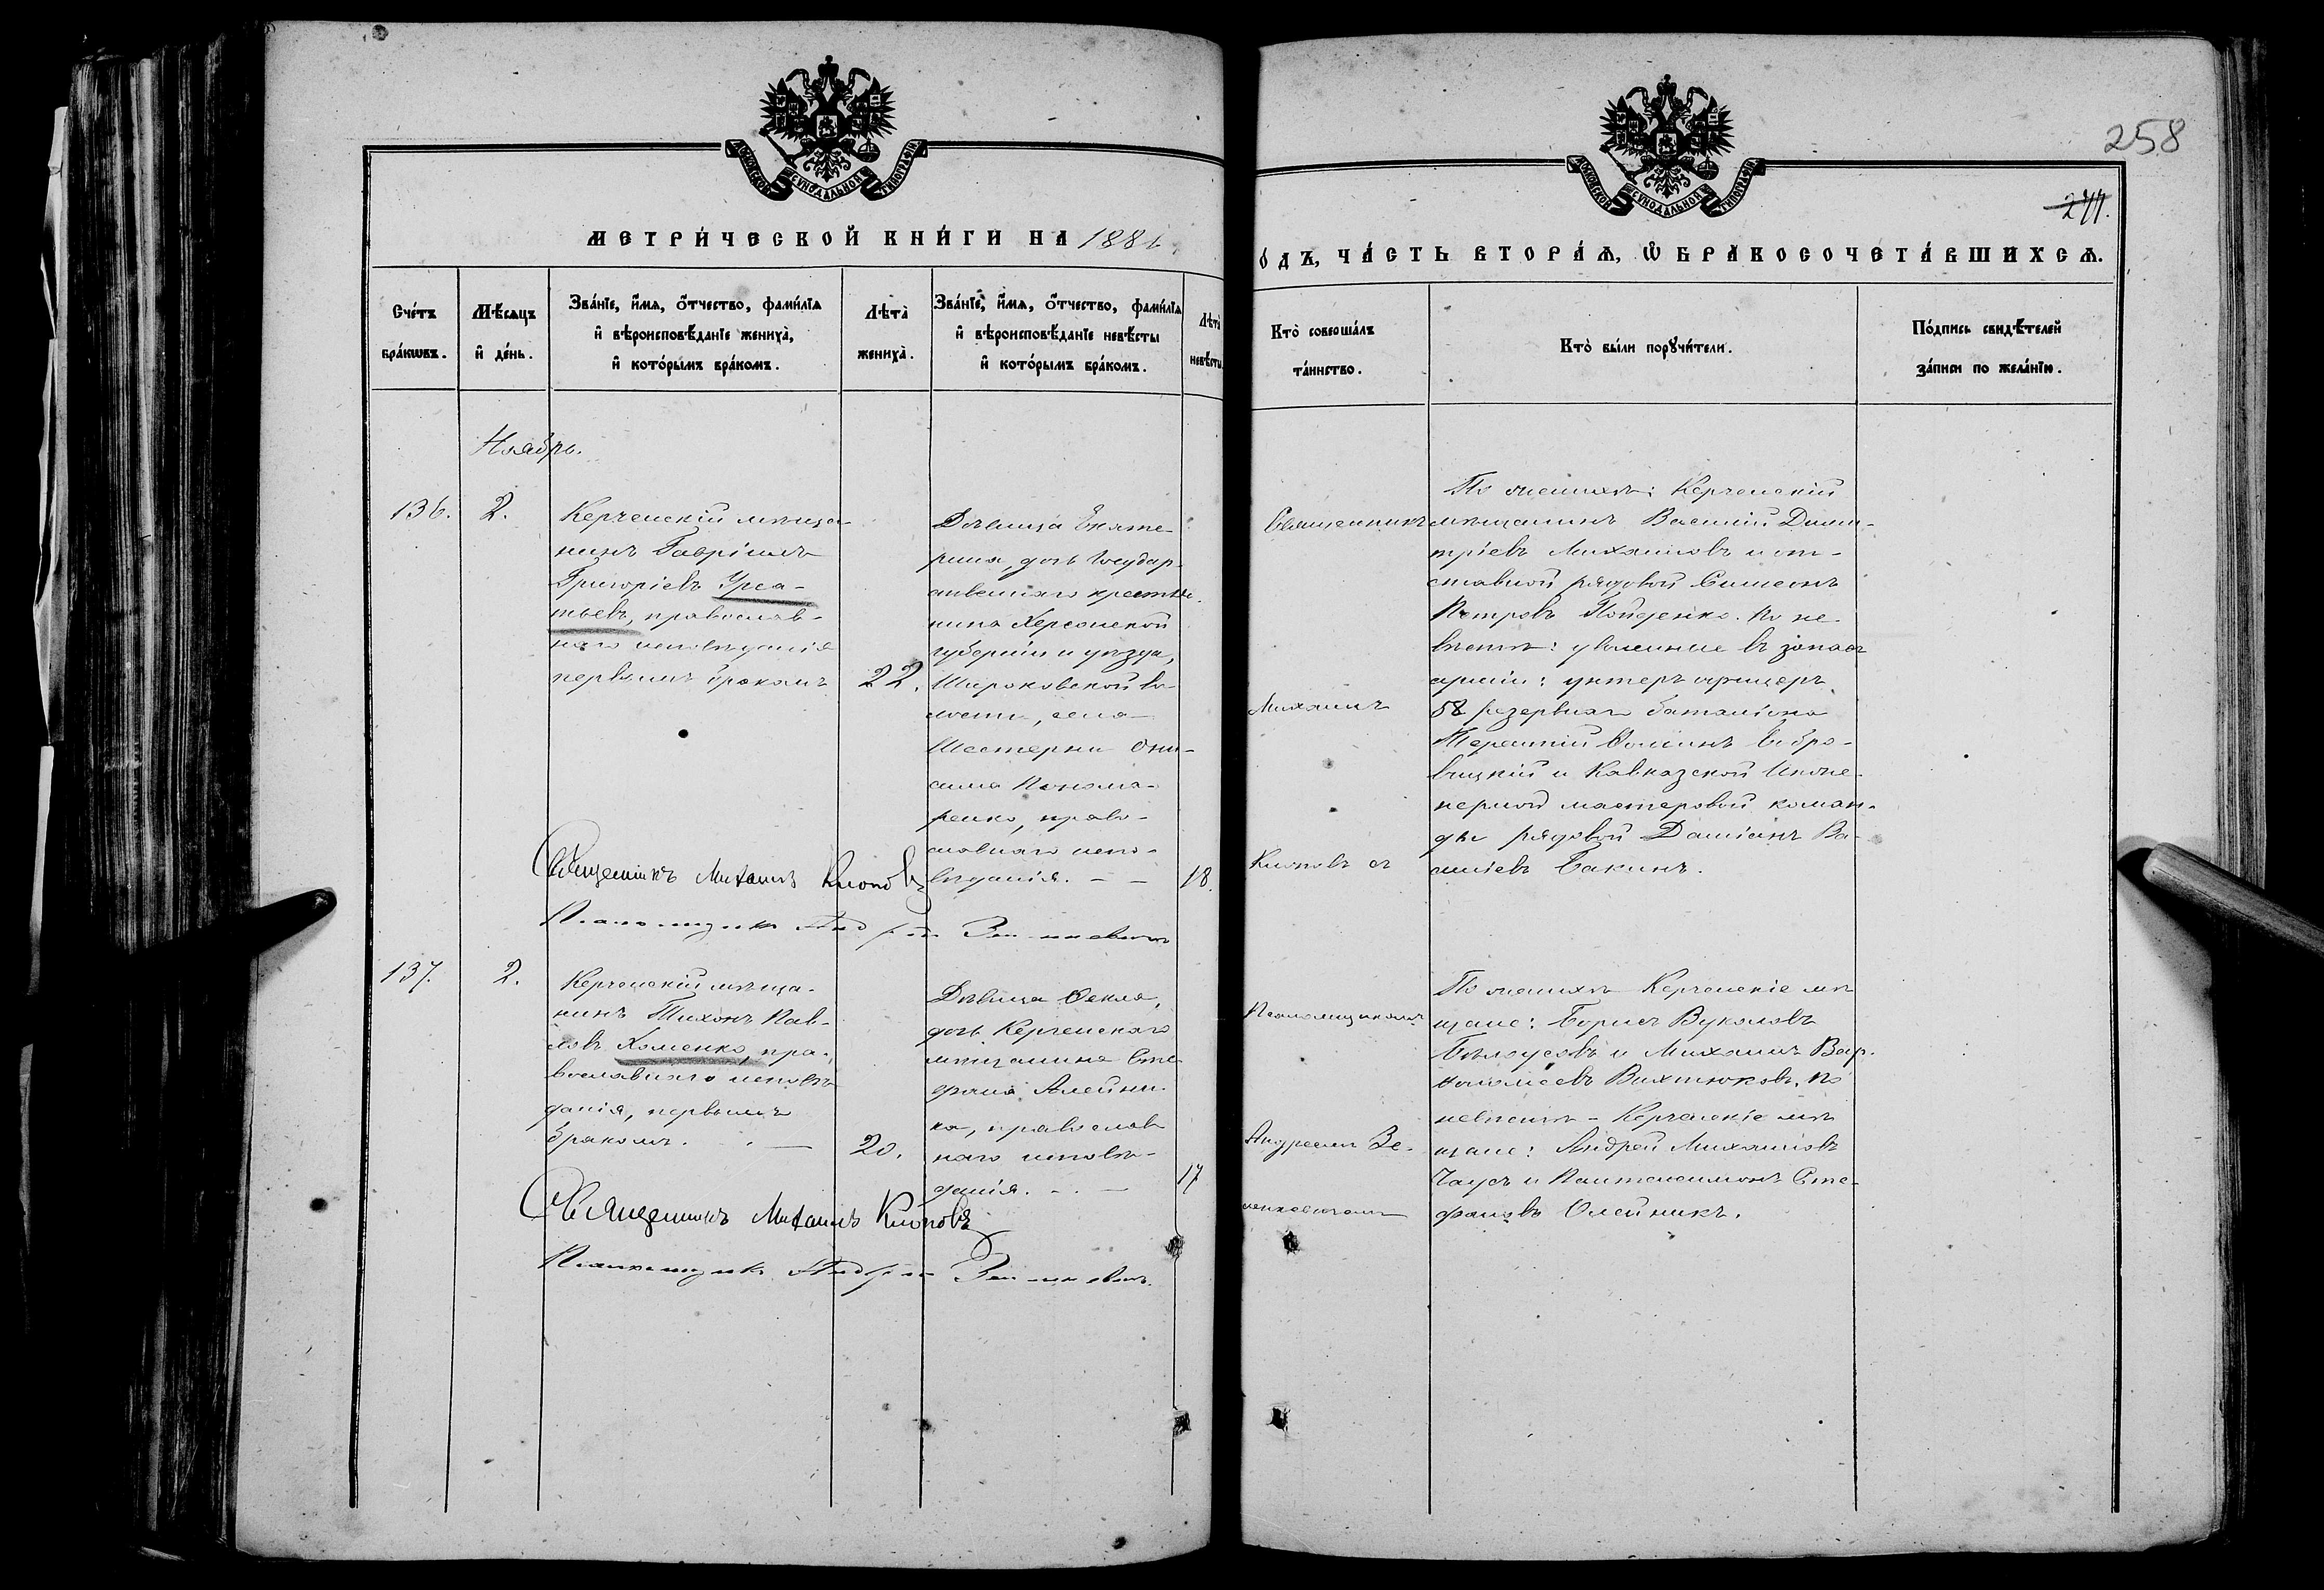 258
МОСКОВСКОЙ СѴНОДАЛЬНОЙ ТИПОГРАФІИ
МОСКОВСКОЙ СѴНОДАЛЬНОЙ ТИПОГРАФІИ
МЕТРИ́ЧЕСКОЙ КНИ́ГИ НА 188
О́ДЪ, ЧА́СТЬ ВТОРА́Ѧ, Ѽ БРАКОСОЧЕТА́ВШИХСѦ.
Сче́тъ бра́кѡвъ.
Мѣ́сѧцъ и҆ де́нь.
Зва́нїе, и҆́мѧ, ѻ҆́тчество, фами́лїѧ
и҆ вѣроисповѣ́данїе жениха̀,
и҆ кото́рымъ бра́комъ.
Лѣта̀ жениха̀.
Зва́нїе, и҆́мѧ, ѻ҆́тчество, фами́лїѧ
и҆ вѣроисповѣ́данїе невѣ́сты
и҆ кото́рымъ бра́комъ.
Лѣта̀ невѣ́сты.
Кто̀ соверша́лъ
та́инство.
Кто̀ бы́ли порꙋчи́тели.
По́дпись свидѣ́телей
за́писи по жела́нїю.
Ноябрь.
136.
2.
Керченскій мѣща-
нинъ Гавріилъ
Григоріевъ Урса-
тьевъ, православ-
наго исповѣданія
первымъ бракомъ
22.
Дѣвица Екате-
рина, дочь Государ-
ственнаго крестья-
нина Херсонской
губерніи и уѣзда,
Широковской во-
лости, села
Шестерни Они-
сима Понома-
ренко, право-
славнаго испо-
вѣданія. - -
18.
Священникъ
Михаилъ
Клоповъ съ
По женихѣ: Керченскій
мѣщанинъ Василій Дими-
тріевъ Михайловъ и от-
ставной рядовой Симеонъ
Петровъ Пойденко. По не-
вѣстѣ: уволенные въ запасъ
арміи: унтеръ офицеръ
58 резервнаго баталіона
Терентій
и Кавказской Инже-
нерной мастеровой коман-
ды рядовой Даміанъ Ва-
силіевъ Бакинъ.
Священникъ Михаилъ Клоповъ
Псаломщикъ Андрей Зенкевичъ
137.
2.
Керченскій мѣща-
нинъ Тихонъ Пав-
ловъ Хоменко, пра-
вославнаго исповѣ-
данія, первымъ
бракомъ. -
20.
Дѣвица Ѳекла,
дочь Керченскаго
мѣщанина Сте-
фана Алейни-
ка, православ-
наго исповѣ-
данія. - -
17
Псаломщикомъ
Андреемъ Зе-
нкевичемъ
По женихѣ Керченскіе мѣ-
щане: Борисъ Вуколовъ
Бѣлоусовъ и Михаилъ Вар-
ѳоломеевъ Вихтюковъ. По
невѣстѣ - Керченскіе мѣ-
щане: Андрей Михайловъ
Чаусъ и Пантелеимонъ Сте-
фановъ Олейникъ.
Священникъ Михаилъ Клоповъ
Псаломщикъ Андрей Зенкевичъ.